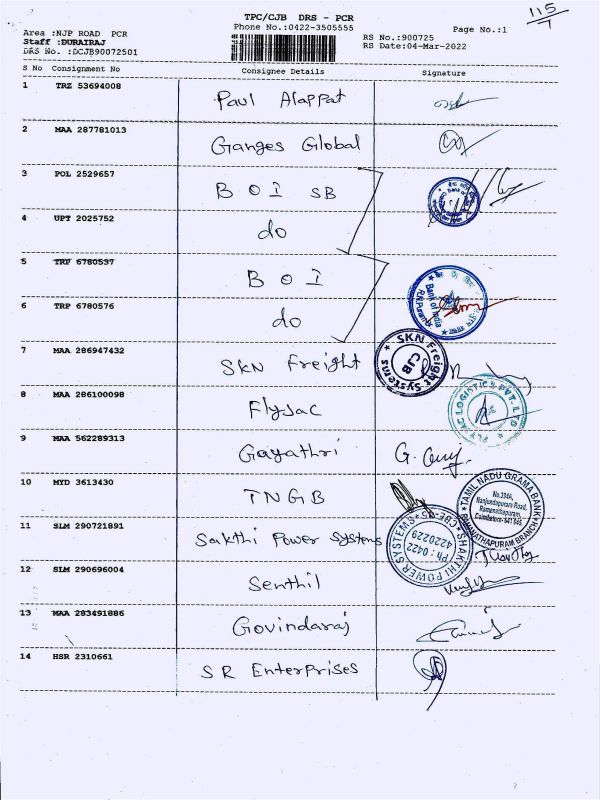 115/1
TPC/CJB DRS - PCR
Phone No.:0422-3505555
Area :NJP ROAD PCR
Staff :DURAIRAJ
DRS No. :DCJB90072501
Page No.:1
RS No.:900725
RS Date:04-Mar-2022
S No Consignment No Consignee Details Signature
1 TRZ 53694008 Paul Alappat
2 MAA 287781013 Ganges Global
3 POL 2529657 B O I SB
4 UPT 2025752 do
5 TRP 6780537 B O I
Bank of India
6 TRP 6780576 do
7 MAA 286947432 SKN Freight
SKN Freight Systems CJB
8 MAA 286100098 Flyjac
FLYJAC LOGISTICS PVT. LTD
9 MAA 562289313 Gayathri G.
10 MYD 3613430 TNGB
TAMIL NADU GRAMA BANK
No.394A,
Nanjundapuram Road,
Ramanathapuram,
Coimbatore-641 045
RAMANATHAPURAM BRANCH
11 SLM 290721891 Sakthi Power Systems
SHAKTHI POWER SYSTEMS CBE-45
Ph : 0422
4220229
12 SLM 290696004 Senthil
13 MAA 283491886 Govindaraj
14 HSR 2310661 SR Enterprises